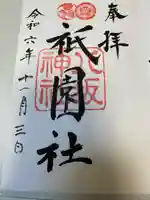 奉拝
祇園社
八坂神社
令和六年十一月三日